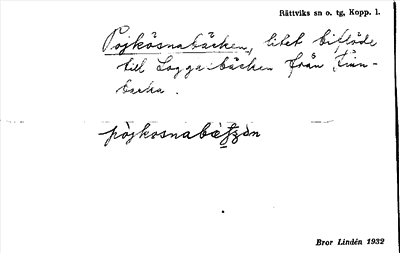 Rättviks sn o. tg, Kopp. l.
Pojkosnabäcken, litet biflöde
till Loggaibäcken från Finn-
backa.
pòjkosnabè
Bror Lindén 1932